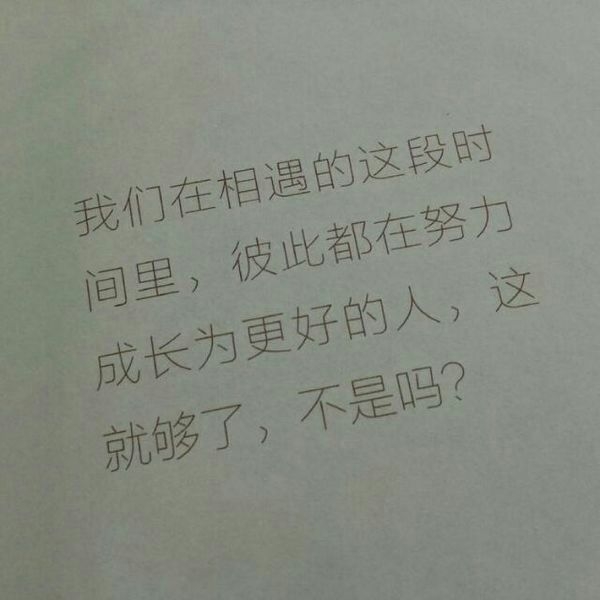 我们在相遇的这段时
间里，彼此都在努力
成长为更好的人，这
就够了，不是吗?